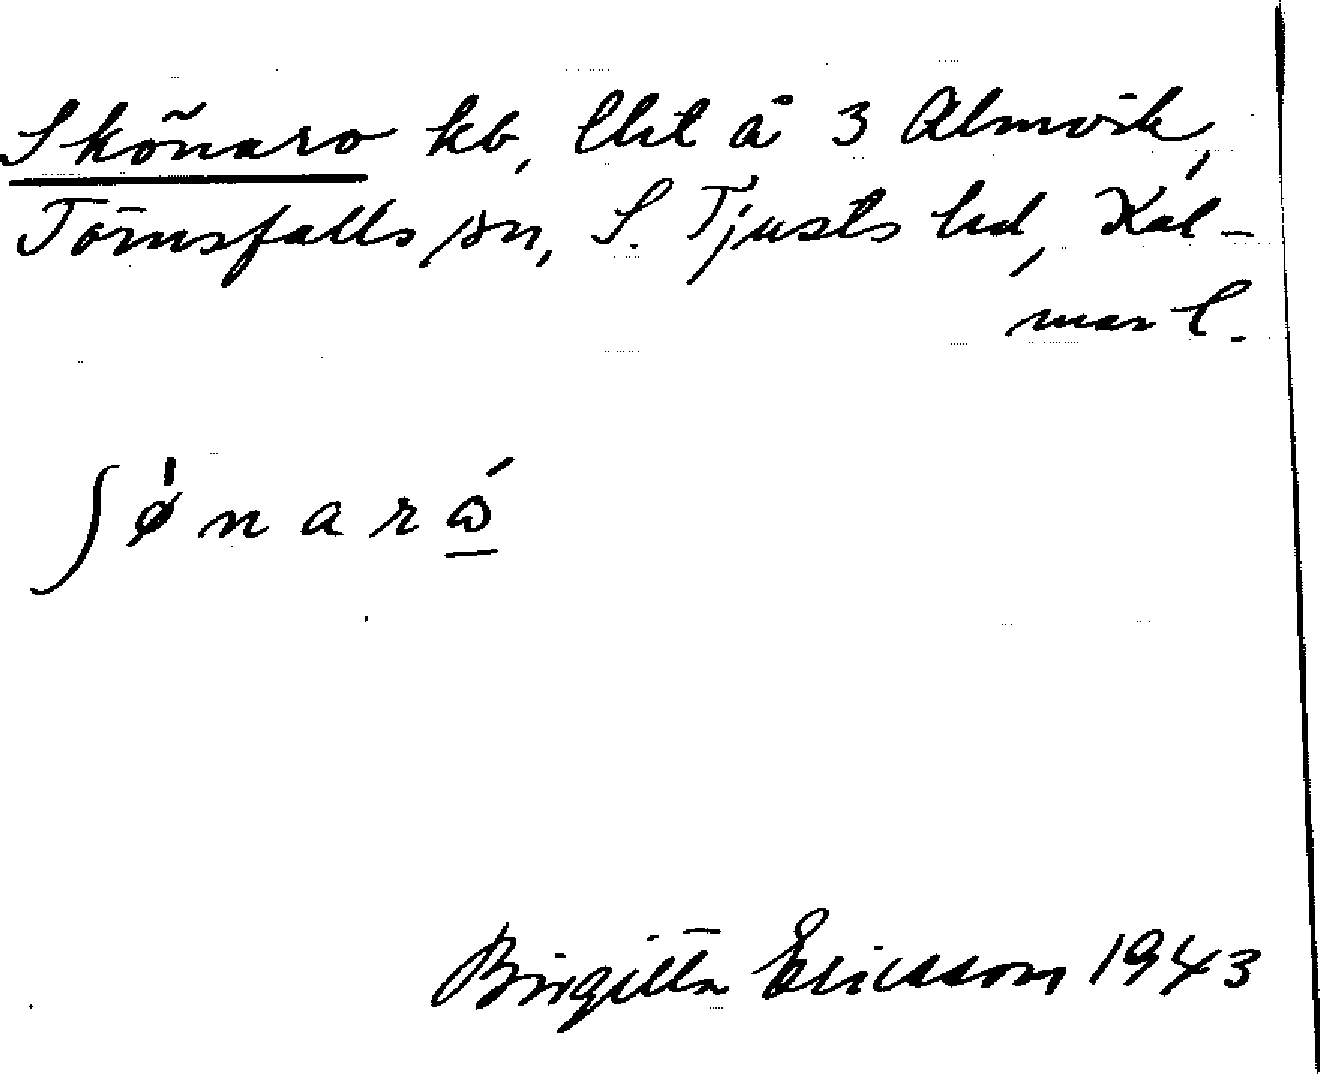 Skönaro kb, Uhl å 3 Almvik,
Törnsfalls sn, S. Tjusts hd, Kal-
mar l.
ʃønarω
Birgitta Ericsson 1943